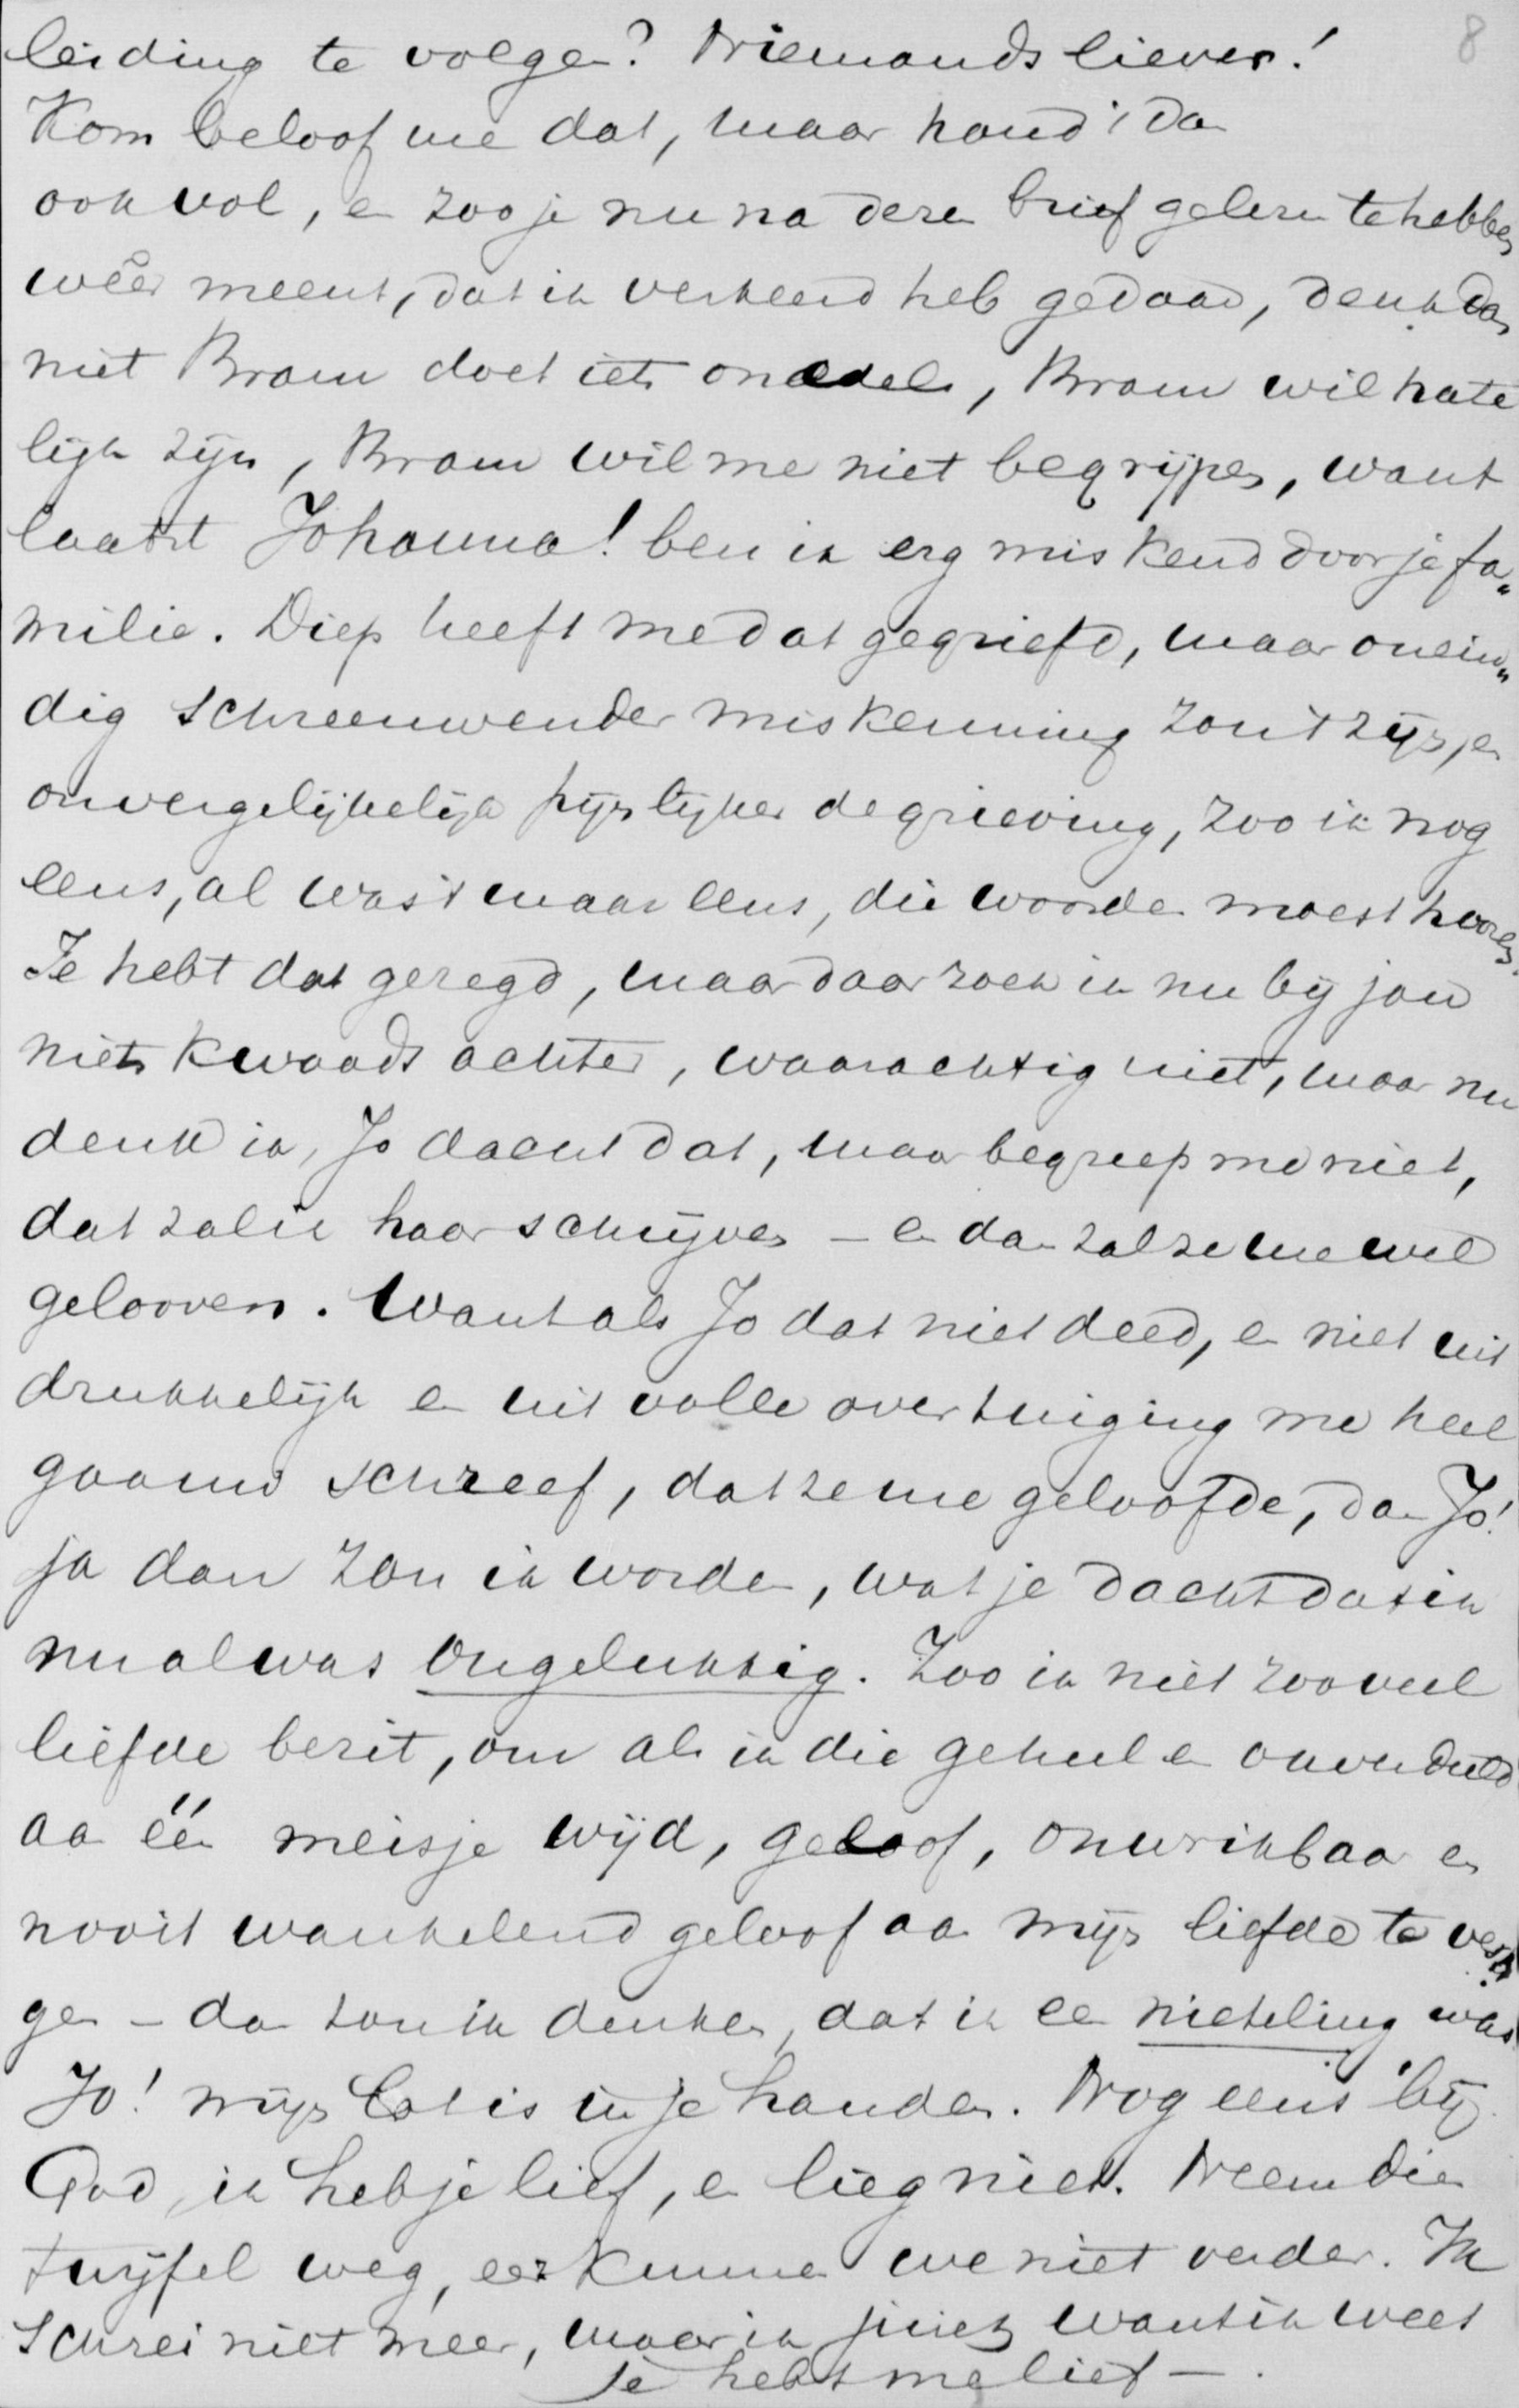 8
leiding te volgen? Niemands liever!
Kom beloof me dat, maar houd 't dan
ook vol, en zoo je nu na dezen brief gelezen te hebben
wêer meent, dat ik verkeerd heb gedaan, denk dan
niet Bram doet iets onedels, Bram wil hate
lijk zijn, Bram wil me niet begrijpen, want
laatst Johanna! ben ik erg miskend door je fa„
milie. Diep heeft me dat gegriefd, maar onein„
dig schreeuwender miskenning zou 't zijn, en
onvergelijkelijk pijnlijker de grieving, zoo ik nog
eens, al was 't maar eens, die woorden moest hooren.
Je hebt dat gezegd, maar daar zoek ik nu bij jou
niets kwaads achter, waarachtig niet, maar nu
denk ik, Jo dacht dat, maar begreep me niet,
dat zal ik haar schrijven – en dan zal ze me wel
gelooven. Want als Jo dat niet deed, en niet uit
drukkelijk en uit volle overtuiging me heel
gaauw schreef, dat ze me geloofde, dan Jo!
ja dan zou ik worden, wat je dacht dat ik
nu al was ongelukkig. Zoo ik niet zooveel
liefde bezit, om als ik die geheel en onverdeeld
aan één meisje wijd, geloof, onwrikbaar en
nooit wankelend geloof aan mijn liefde te verkrij
gen – dan zou ik denken, dat ik een nieteling was.
Jo! mijn lot is in je handen. Nog eens bij
God, ik heb je lief, en lieg niet. Neem die
twijfel weg, eer kunnen we niet verder. Ik
schrei niet meer, maar ik juich want ik weet
Je hebt me lief –.